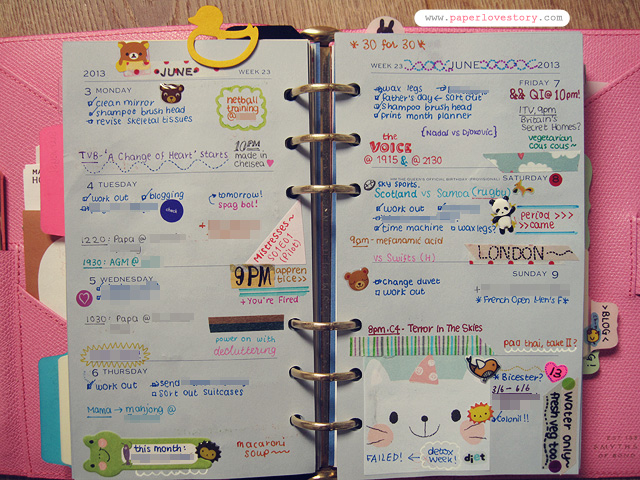 www.paperlovestory.com
2013 JUNE WEEK 23
3 MONDAY
clean mirror
shampoo brush head
revise skeletal tissues
netball
training
@
TVB- 'A Change of Heart' starts
10PM
made in
chelsea
4 TUESDAY
work out
blogging
check
tomorrow!
spag bol!
+
1220: Papa @
1930: AGM @
Mistresses~
S01E01
(Pilot)
5 WEDNESDAY
9PM
apprentice>>
+ You're Fired
1030: Papa @
power on with
decluttering
6 THURSDAY
work out
send
sort out suitcases
Mama → mahjong @
this month:
macaroni
soup~
* 30 for 30 *
WEEK 23 JUNE 2013
FRIDAY 7
wax legs
father's day ← sort out
shampoo brush head
print month planner
&& QI@ 10pm!
the
VOICE
@ 1915 & @ 2130
[Nadal vs Djokovic]
ITV, 9pm
Britain's
Secret Homes?
vegetarian
cous cous~
THE QUEEN'S OFFICIAL BIRTHDAY (PROVISIONAL) SATURDAY 8
sky sports.
Scotland vs Samoa (rugby)
work out
time machine
wax legs?
period >>>
>>came
9am- mefanamic acid
vs Swifts (H)
LONDON~
SUNDAY 9
change duvet
work out
+
* French Open Men's F*
8pm-C4- Terror In The Skies
pad thai, take II?
>BLOG<
G!
Bicester?
3/6 - 6/6
Colonil!!
13
water only~
fresh veg too
FAILED! ←
detox
week!
diet